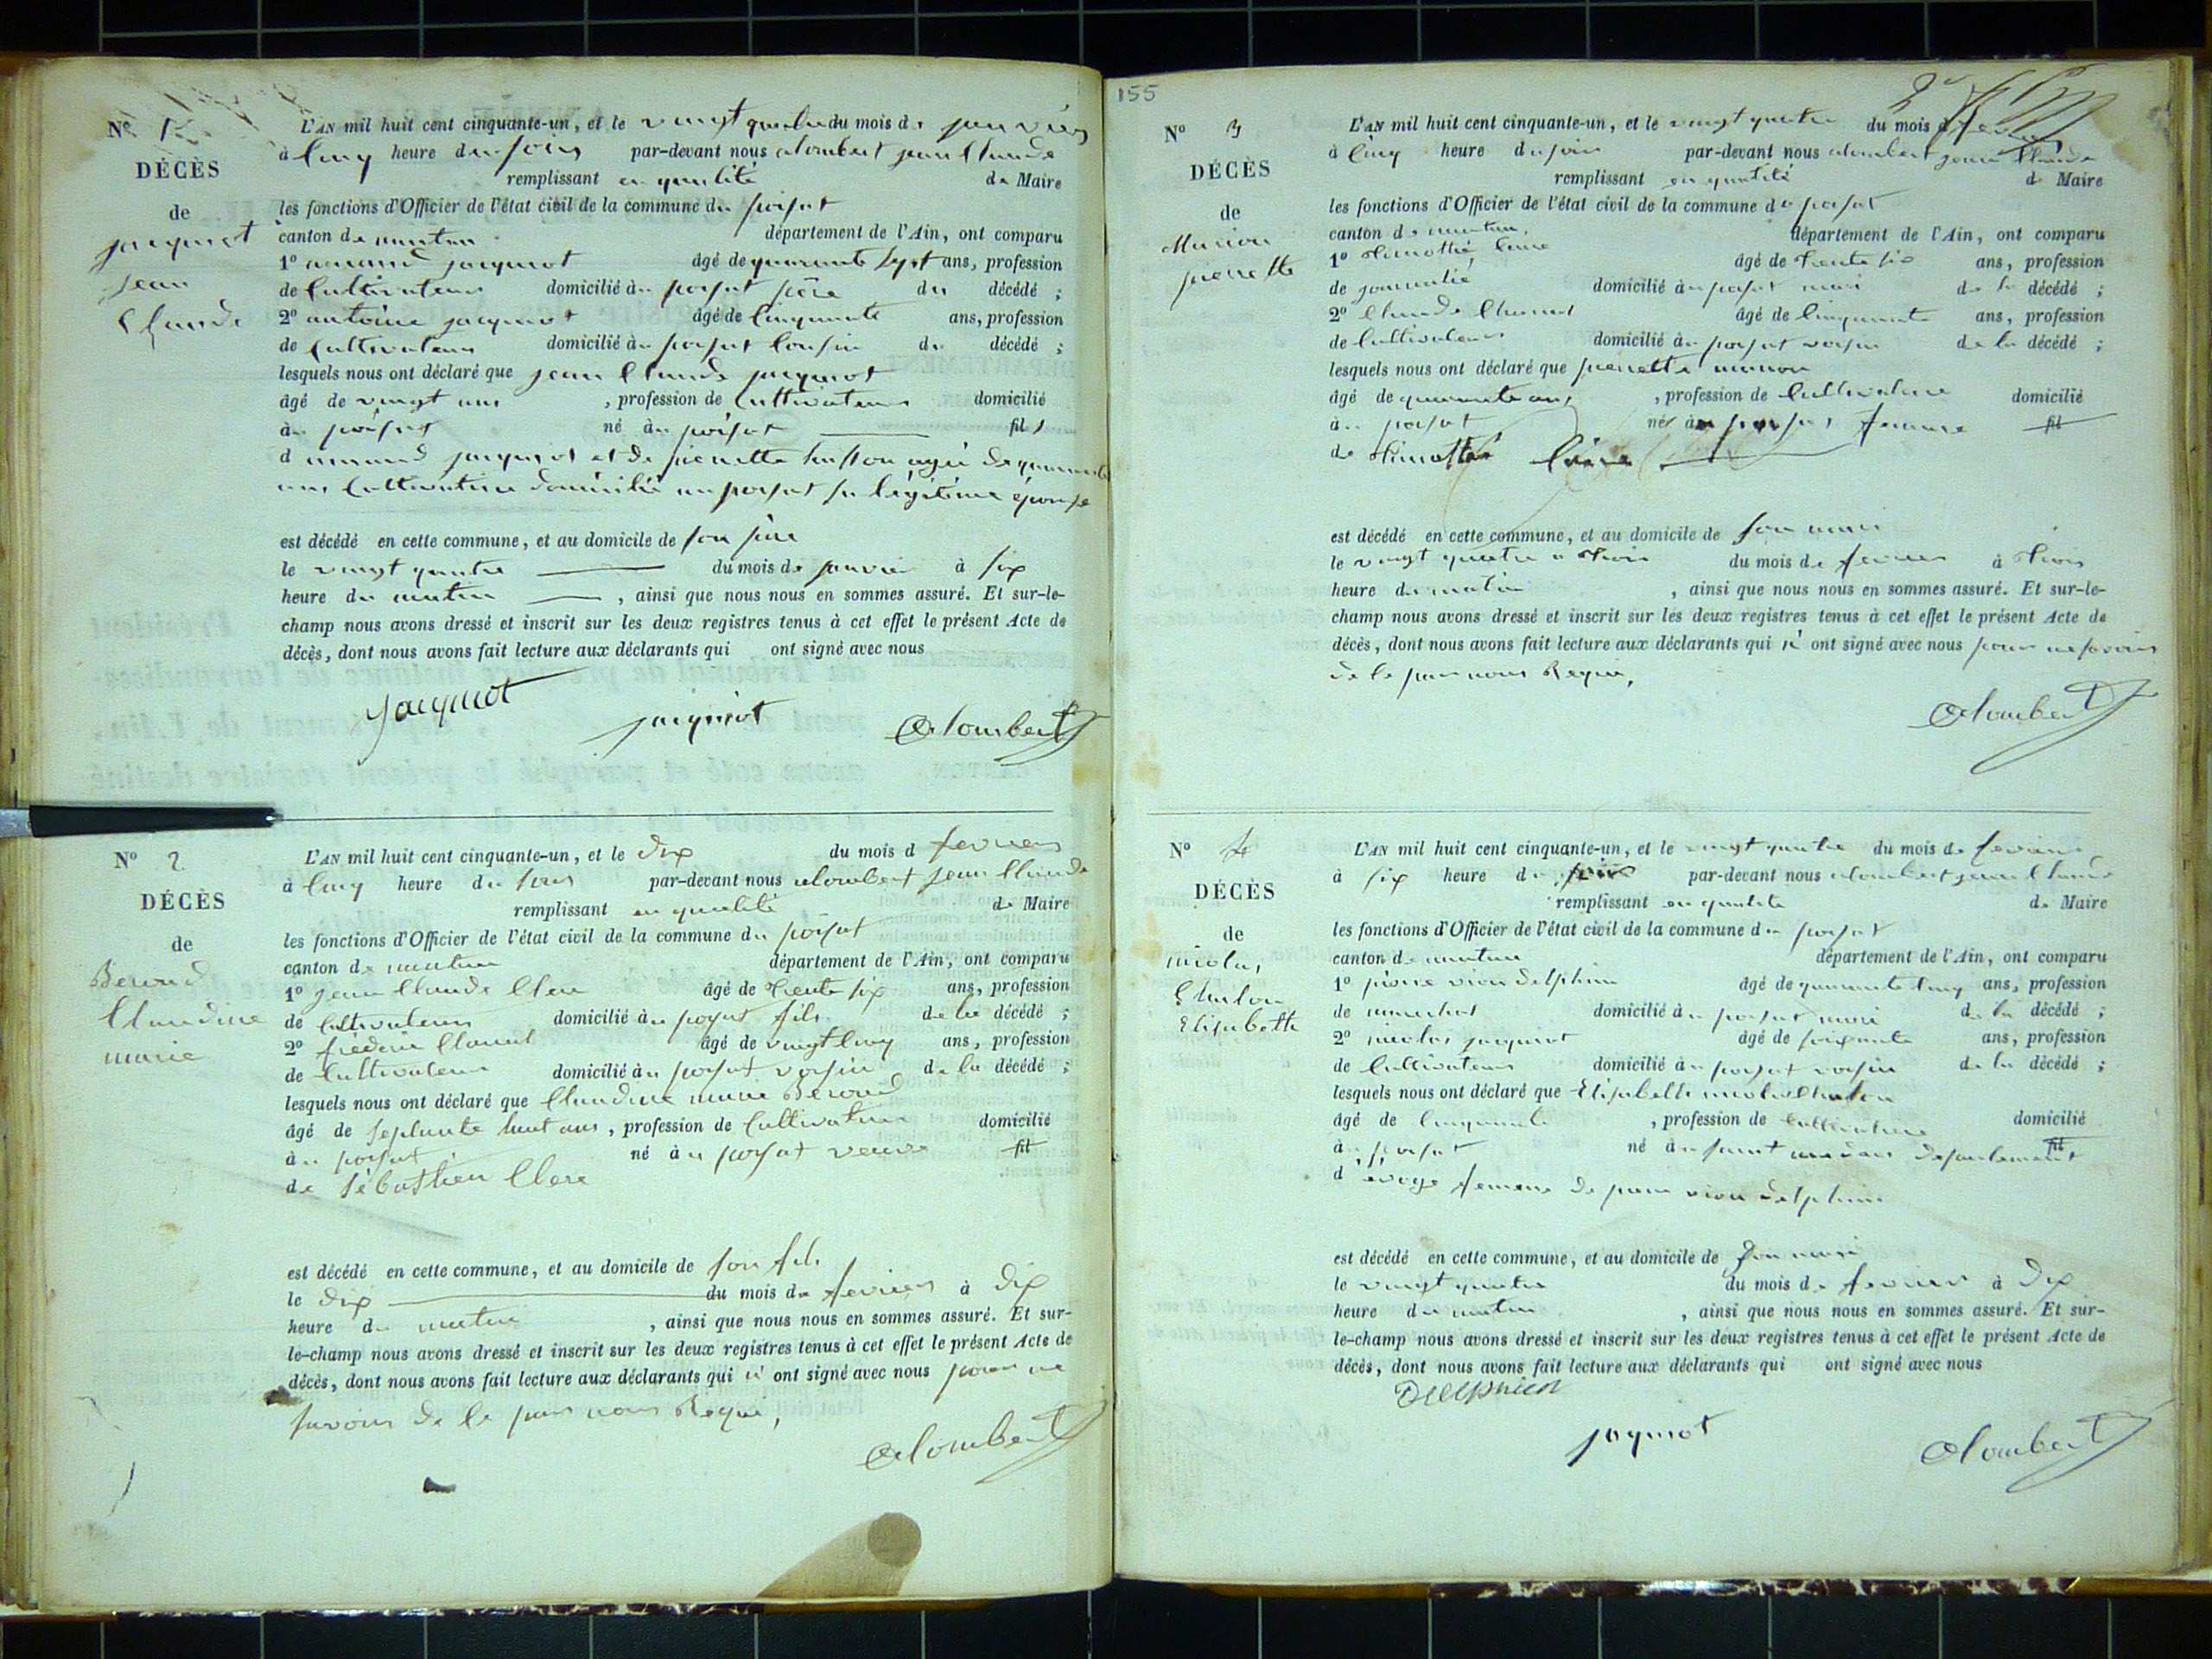 N° 1
DÉCÈS
de
jacquiot
jean
Claude
L'AN mil huit cent cinquante-un, et le vingt quatre du mois de janvier
à cinq heure du soir par-devant nous alombert jean Claude
remplissant en qualité de Maire
les fonctions d'Officier de l'état civil de la commune du poisat
canton de nantua département de l'Ain, ont comparu
1° amand jacquiot âgé de quarante sept ans, profession
de Cultivateur domicilié au poisat père du décédé ;
2° antoine jacquiot âgé de Cinquante ans, profession
de Cultivateur domicilié au poisat Cousin du décédé ;
lesquels nous ont déclaré que jean Claude jacquiot
âgé de vingt ans , profession de Cultivateur domicilié
au poisat né au poisat fils
d'amand jacquiot et de pierrette husson agée de quarante
ans Cultivatrice domicilié au poisat sa légitime épouse
est décédé en cette commune, et au domicile de son père
le vingt quatre du mois de janvier à six
heure du matin , ainsi que nous nous en sommes assuré. Et sur-le-
champ nous avons dressé et inscrit sur les deux registres tenus à cet effet le présent Acte de
décès, dont nous avons fait lecture aux déclarants qui ont signé avec nous
jacquiot jacquiot Alombert
N° 2
DÉCÈS
de
Beroud
Claudine
marie
L'AN mil huit cent cinquante-un, et le dix du mois d fevrier
à Cinq heure du soir par-devant nous alombert jean Claude
remplissant en qualité de Maire
les fonctions d'Officier de l'état civil de la commune du poisat
canton de nantua département de l'Ain, ont comparu
1° jean Claude Clere âgé de trente six ans, profession
de Cultivateur domicilié au poisat fils de la décédé ;
2° fréderic âgé de vingt Cinq ans, profession
de Cultivateur domicilié au poisat voisin de la décédé ;
lesquels nous ont déclaré que Claudine marie Beroud
âgé de septante huit ans , profession de Cultivatrice domicilié
au poisat né au poisat veuve fil
de Sébasthien Clere
est décédé en cette commune, et au domicile de son fils
le dix du mois de fevrier à dix
heure du matin , ainsi que nous nous en sommes assuré. Et sur-
le-champ nous avons dressé et inscrit sur les deux registres tenus à cet effet le présent Acte de
décès, dont nous avons fait lecture aux déclarants qui n' ont signé avec nous pour ne
savoir de le par nous Requi,
Alombert
155
N° 3
DÉCÈS
de
Marion
pierrette
L'AN mil huit cent cinquante-un, et le vingt quatre du mois d fevrier
à Cinq heure du soir par-devant nous alombert jean Claude
remplissant en qualité de Maire
les fonctions d'Officier de l'état civil de la commune du poisat
canton de nantua, département de l'Ain, ont comparu
1° timothé âgé de trente six ans, profession
de journalié domicilié au poisat mari de la décédé ;
2° Claude âgé de Cinquante ans, profession
de Cultivateur domicilié au poisat voisin de la décédé ;
lesquels nous ont déclaré que pierrette marion
âgé de quarante ans, , profession de Cultivatrice domicilié
au poisat né au poisat femme fil
de timothé
est décédé en cette commune, et au domicile de son mari
le vingt quatre a trois du mois de fevrier à trois
heure du matin , ainsi que nous nous en sommes assuré. Et sur-le-
champ nous avons dressé et inscrit sur les deux registres tenus à cet effet le présent Acte de
décès, dont nous avons fait lecture aux déclarants qui n' ont signé avec nous pour ne savoir
de le par nous Requi,
Alombert
N° 4
DÉCÈS
de
nicolas
Chalon
Elisabette
L'AN mil huit cent cinquante-un, et le vingt quatre du mois de fevrier
à six heure du soir par-devant nous alombert jean Claude
remplissant en qualite de Maire
les fonctions d'Officier de l'état civil de la commune du poisat
canton de nantua département de l'Ain, ont comparu
1° pierre viou delphin âgé de quarante cinq ans, profession
de domicilié au poisat mari de la décédé ;
2° nicolas jacquiot âgé de soixante ans, profession
de Cultivateur domicilié au poisat voisin de la décédé ;
lesquels nous ont déclaré que Elisabette nicolas Chalon
âgé de Cinquante , profession de Cultivatrice domicilié
au poisat né au saint departement fil
d' femme de pierre viou delphin
est décédé en cette commune, et au domicile de son mari
le vingt quatre du mois de fevrier à dix
heure du matin , ainsi que nous nous en sommes assuré. Et sur-
le-champ nous avons dressé et inscrit sur les deux registres tenus à cet effet le présent Acte de
décès, dont nous avons fait lecture aux déclarants qui ont signé avec nous
jaquiot Alombert